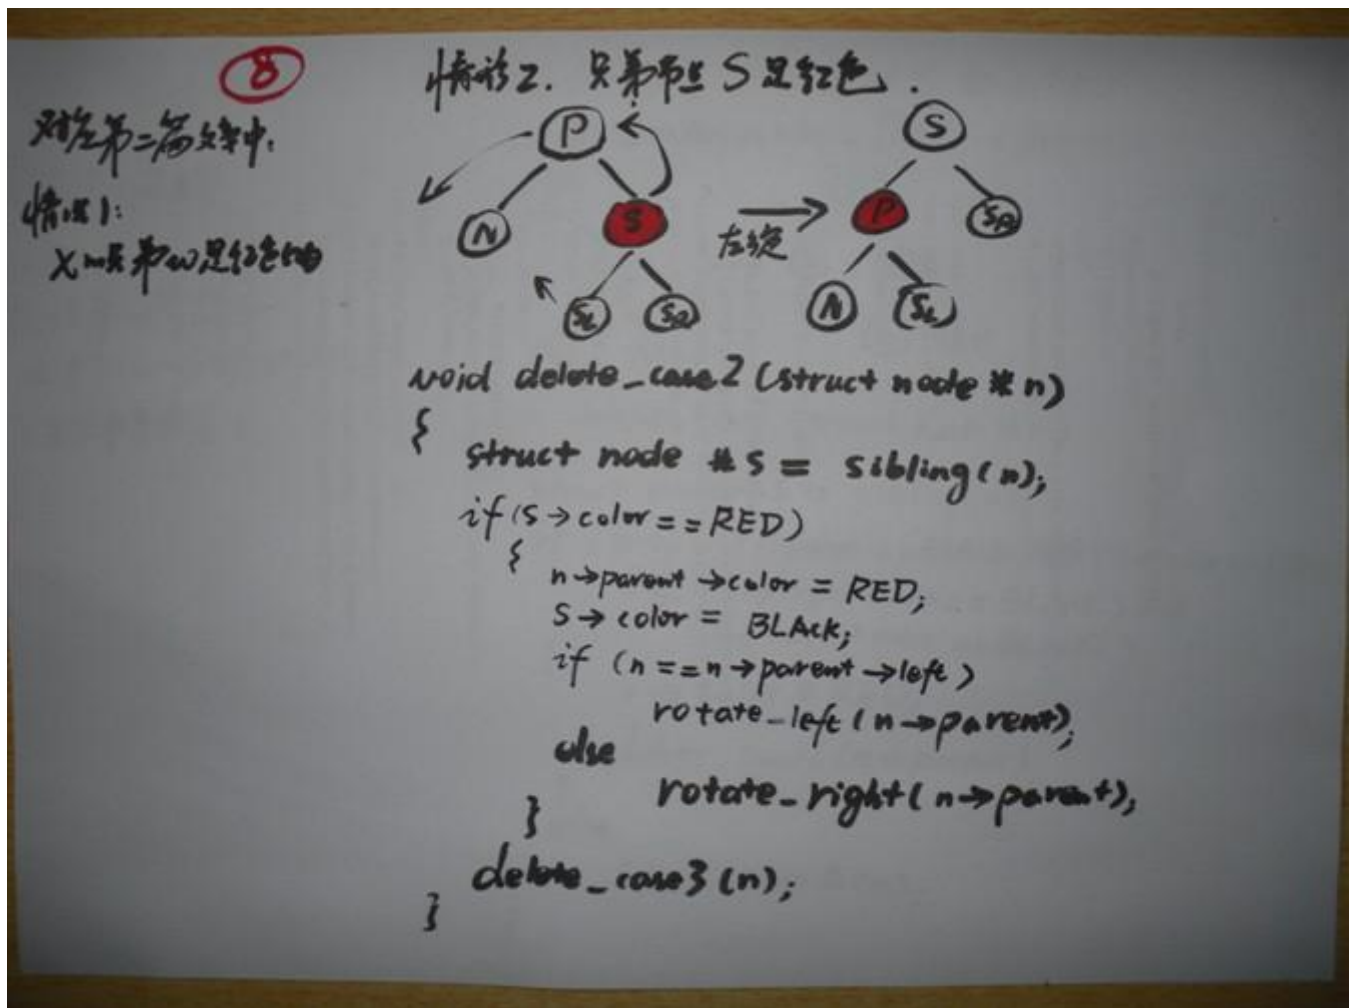 ⑧
对应第二篇文章中:
情况1:
x的兄弟w是红色的
情形2. 兄弟节点S是红色.
P
S
N
S
左旋
P
SR
SL
SR
N
SL
void delete_case2(struct node *n)
{
struct node *s = sibling(n);
if(s→color==RED)
{
n→parent→color = RED;
s→color = BLACK;
if (n==n→parent→left)
rotate_left(n→parent);
else
rotate_right(n→parent);
}
delete_case3(n);
}